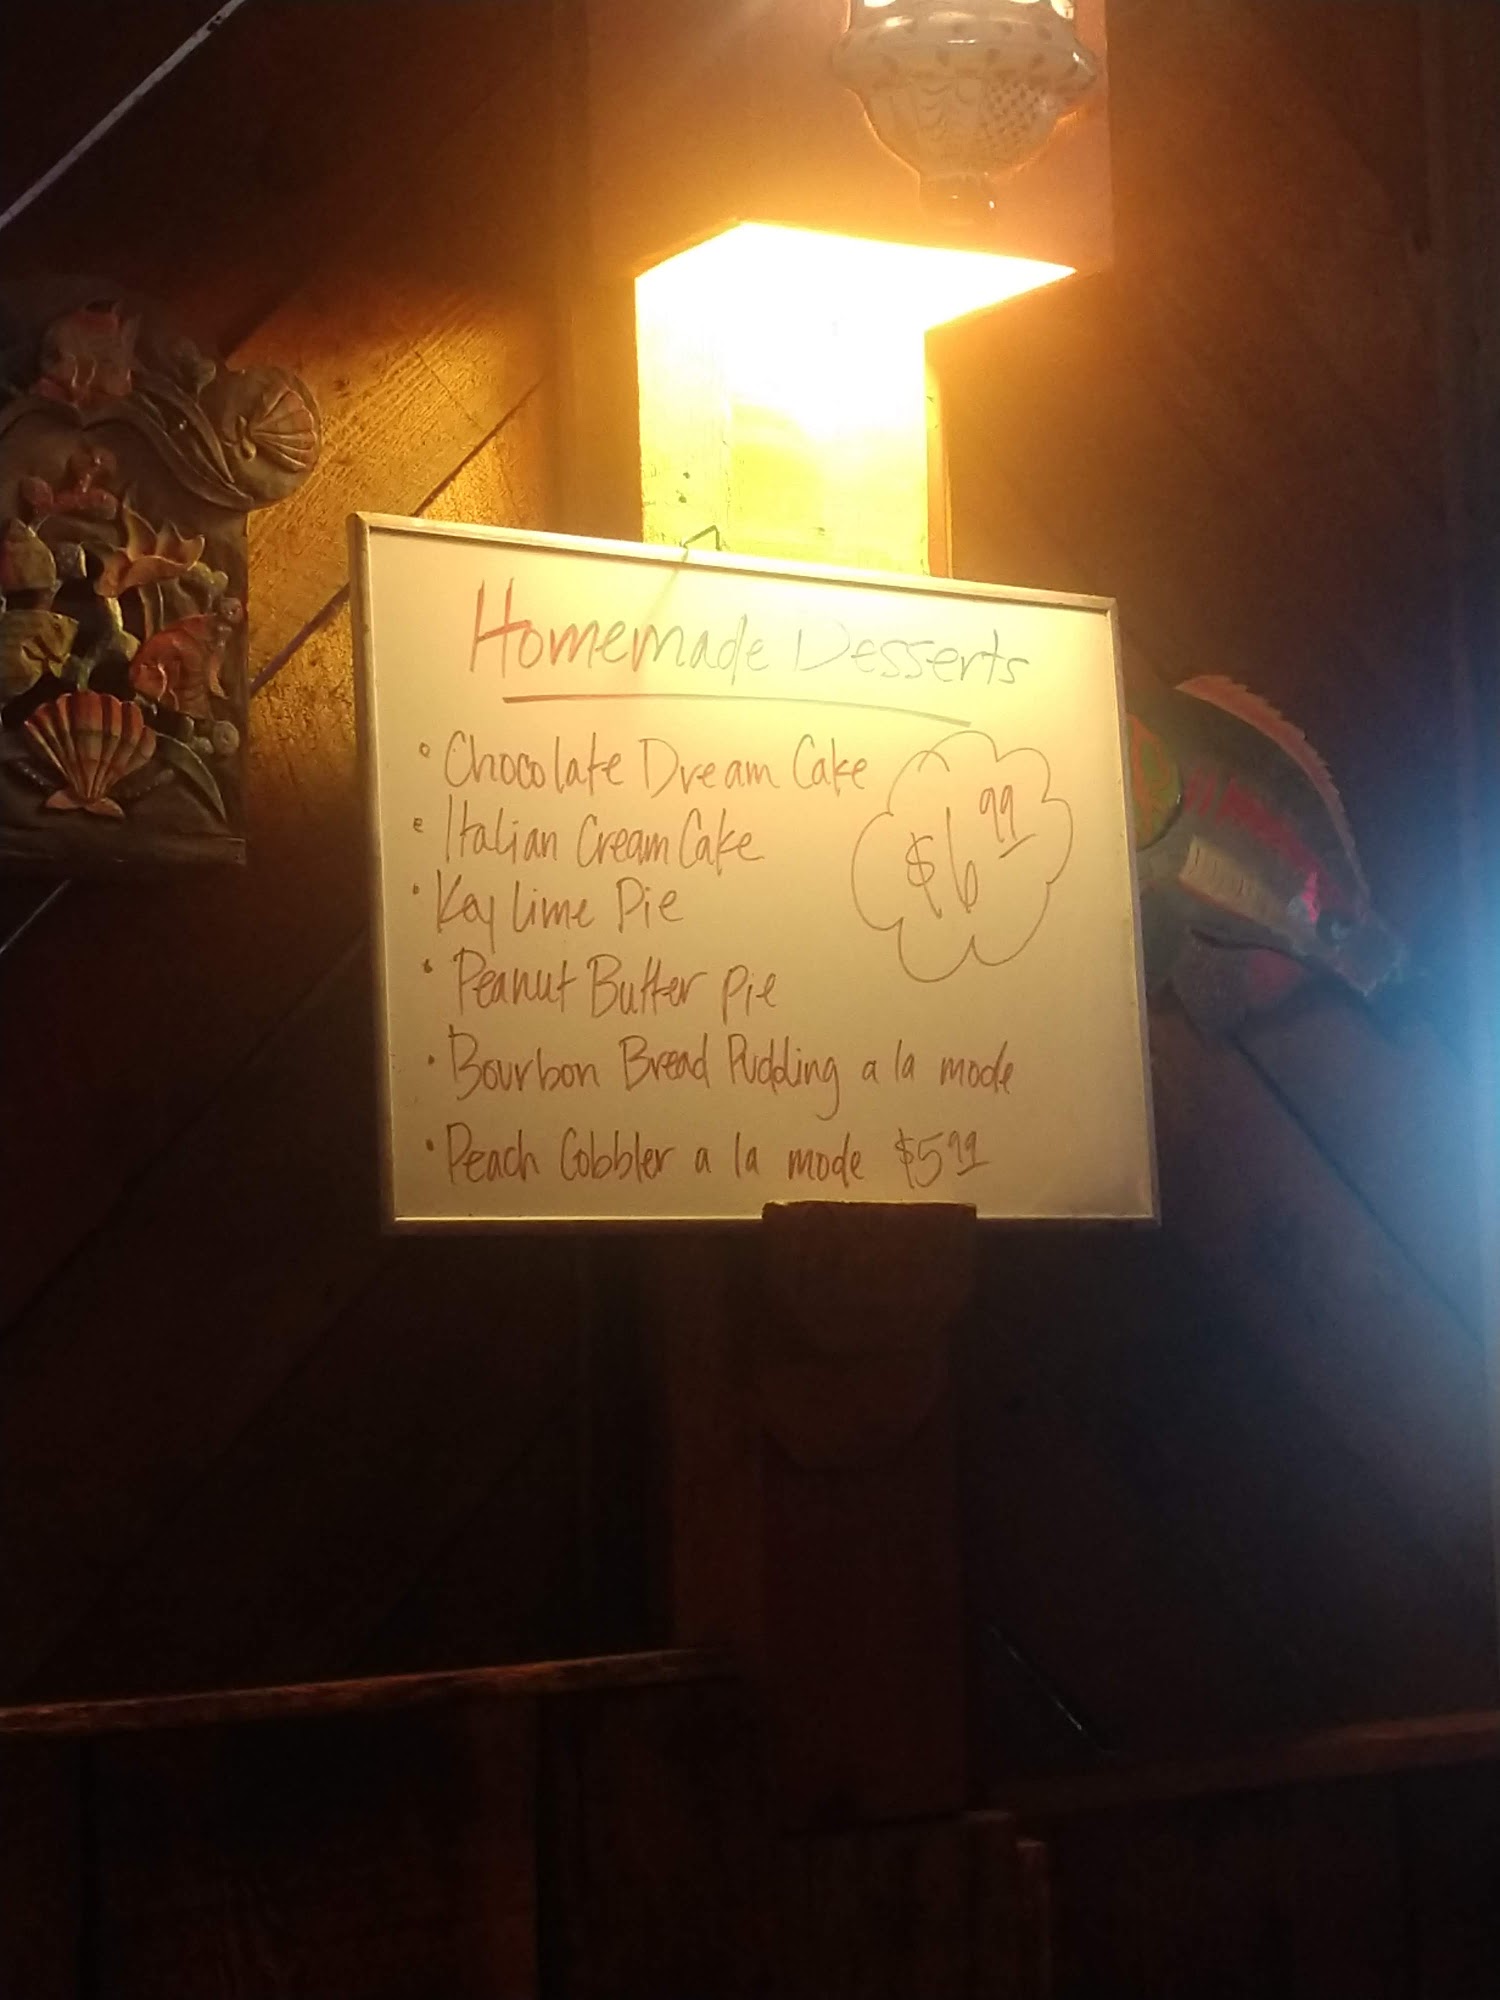 Homemade Desserts
• Chocolate Dream Cake
• Italian Cream Cake
$6.99
• Key Lime Pie
• Peanut Butter Pie
• Bourbon Bread Pudding a la mode
• Peach Cobbler a la mode $5.99